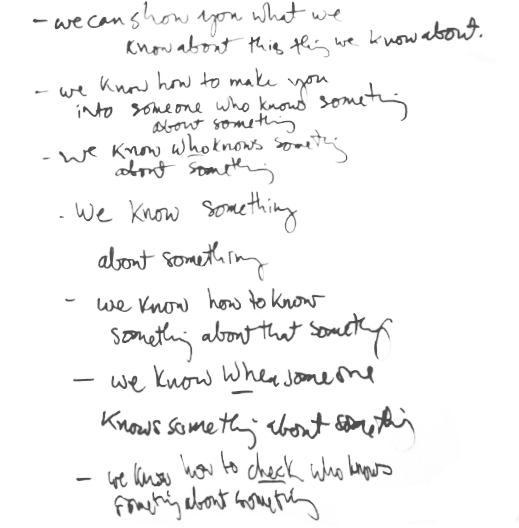 - we can show you what we
know about this thing we know about.
- we know how to make you
into someone who knows something
about something
- we know who knows something
about something
. We know something
about something
- we know how to know
something about that something
- we know when someone
knows something about something
- we know how to check who knows
something about something